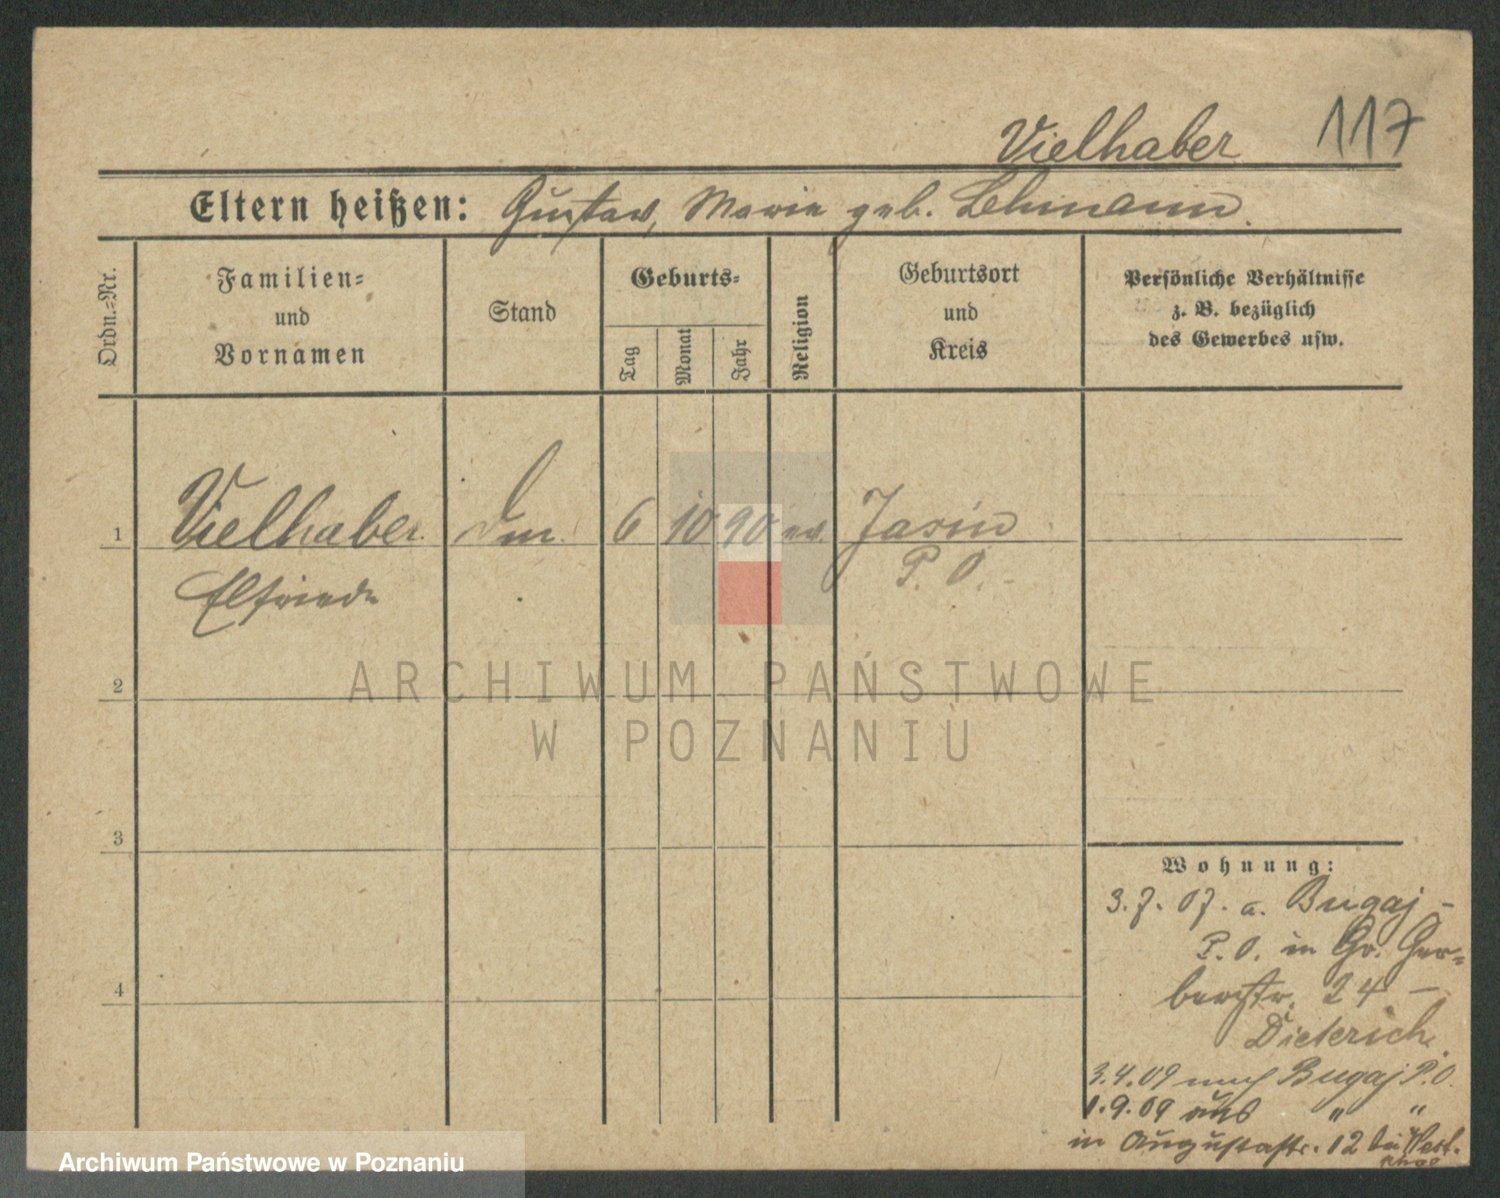 Vielhaber 117
Eltern heißen: Gustav, Marie geb. Lehmann.
Ordn.-Nr.
Familien-
und
Vornamen
Stand
Geburts-
Tag
Monat
Jahr
Religion
Geburtsort
und
Kreis
Persönliche Verhältnisse
z. B. bezüglich
des Gewerbes usw.
1 Vielhaber 6 10 90 ev. Jasin
Elfriede P. O.
2
ARCHIWUM PAŃSTWOWE
W POZNANIU
3
4
Wohnung:
3.7.07. a. Bugaj -
P.O. in Gr. Ger-
berstr. 24 -
Dieterich.
3.4.09 nach Bugaj P.O.
1.9.09 aus " "
in Augustastr. 12 bei
Archiwum Państwowe w Poznaniu